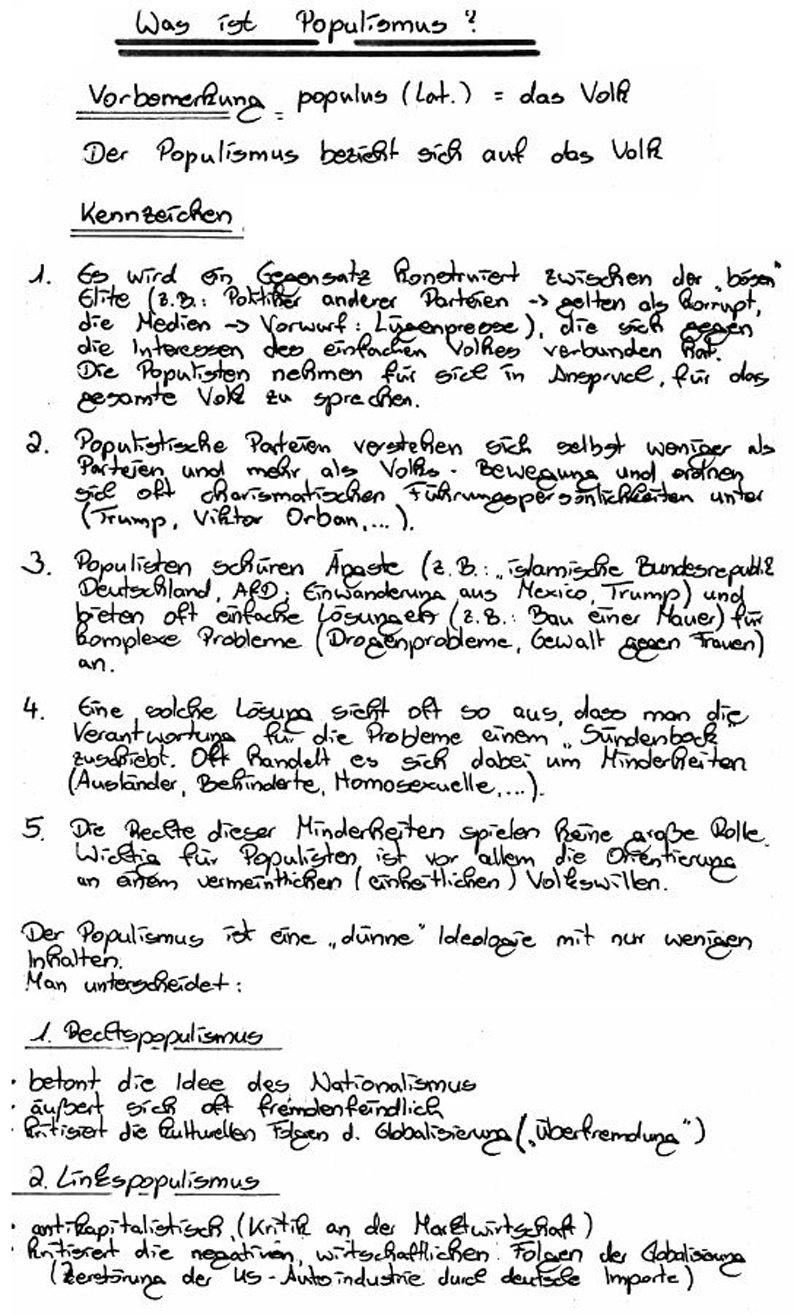 Was ist Populismus?
Vorbemerkung: populus (Lat.) = das Volk
Der Populismus bezieht sich auf das Volk
Kennzeichen
1. Es wird ein Gegensatz konstruiert zwischen der „bösen"
Elite (z.B.: Politiker anderer Parteien -> gelten als korrupt,
die Medien -> Vorwurf: Lügenpresse), die sich gegen
die Interessen des einfachen Volkes verbunden hat.
Die Populisten nehmen für sich in Anspruch, für das
gesamte Volk zu sprechen.
2. Populistische Parteien verstehen sich selbst weniger als
Parteien und mehr als Volks-Bewegung und ordnen
sich oft charismatischen Führungspersönlichkeiten unter
(Trump, Viktor Orban,...).
3. Populisten schüren Ängste (z.B.: „islamische Bundesrepublik
Deutschland, AfD; Einwanderung aus Mexico, Trump) und
bieten oft einfache Lösungen (z.B.: Bau einer Mauer) für
komplexe Probleme (Drogenprobleme, Gewalt gegen Frauen)
an.
4. Eine solche Lösung sieht oft so aus, dass man die
Verantwortung für die Probleme einem „Sündenbock"
zuschiebt. Oft handelt es sich dabei um Minderheiten
(Ausländer, Behinderte, Homosexuelle,...).
5. Die Rechte dieser Minderheiten spielen keine große Rolle.
Wichtig für Populisten ist vor allem die Orientierung
an einem vermeintlichen (einheitlichen) Volkswillen.
Der Populismus ist eine „dünne" Ideologie mit nur wenigen
Inhalten.
Man unterscheidet:
1. Rechtspopulismus
· betont die Idee des Nationalismus
· äußert sich oft fremdenfeindlich
· kritisiert die kulturellen Folgen d. Globalisierung („Überfremdung")
2. Linkspopulismus
· antikapitalistisch (Kritik an der Marktwirtschaft)
· kritisiert die negativen, wirtschaftlichen Folgen der Globalisierung
(Zerstörung der US-Autoindustrie durch deutsche Importe)